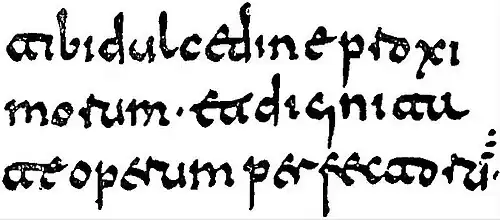 tibi dulcedine proxi
morum · et dignita
te operum perfectorū·